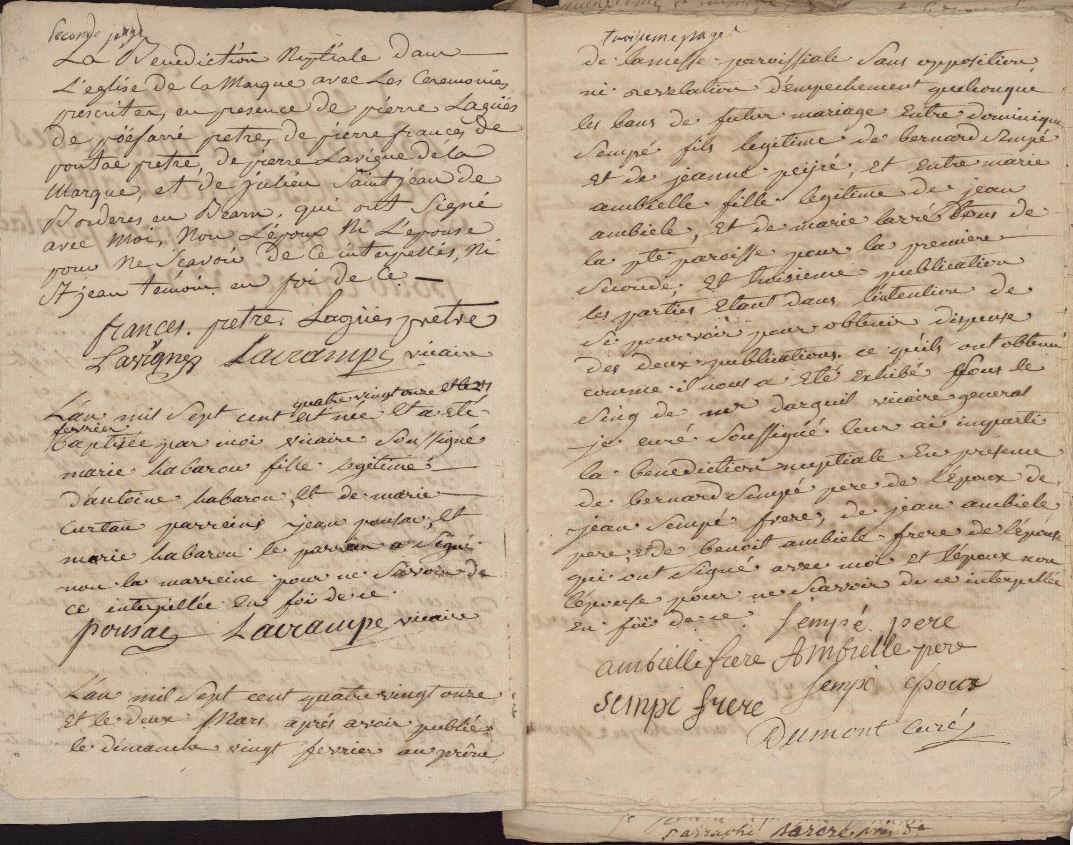 Seconde page
La Benediction Nuptiale dans
L'église de la Marque avec Les Ceremonies
prescrites, en presence de pierre Lagües
de pretre, de pierre frances de
pontac pretre, de pierre Lavigne de la
Marque, et de julien Saintjean de
Borderes en Bearn, qui ont Signé
avec moi, Non L'époux Ni L'épouse
pour Ne Scavoir de Ce interpellés, Ni
St jean temoin. en foi de Ce
frances. pretre. Lagües pretre
Lavigne Lacrampe vicaire
quatre vingt onze et le 21
L'an mil Sept cent et a eté
fevrier
baptisée par moi vicaire Soussigné
marie habarou fille legitime
d'antoine habarou, Et de marie
curtau parreins jean pousac, Et
marie habarou le parrain a Signé
non la marreine pour ne Savoir de
ce interpellée En foi de ce.
pousac Lacrampe vicaire
L'an mil Sept cent quatre vingt onze
Et le deux Mars aprés avoir publié
le dimanche vingt fevrier au prône
troisieme page
de la messe paroissiale Sans opposition
ni revelation d'empechement quelconque
les bans de futur mariage Entre dominique
Sempé fils legitime de bernard Sempé
Et de jeanne peijré, Et Entre marie
ambielle fille legitime de jean
ambiele, Et de marie larré tous de
la pte paroisse pour la premiere
Seconde Et troisieme publication
les parties Etant dans l'intention de
Se pourvoir pour obtenir dispense
des deux publications. ce qu'ils ont obtenu
comme il nous a Eté Exhibé Sous le
Sing de mr darguil vicaire general
je curé Soussigné leur ai imparti
la benediction nuptiale En presence
de bernard Sempé pere de l'époux de
jean Sempé frere, de jean ambiele
pere et de benoit ambiele frere de l'épouse
qui ont Signé avec moi et l'époux non
l'épouse pour ne Scavoir de ce interpellée
En foi de ce. Sempé pere
ambielle frere Ambielle pere
Sempé frere Sempé Epoux
Dumont Curé
parraphé